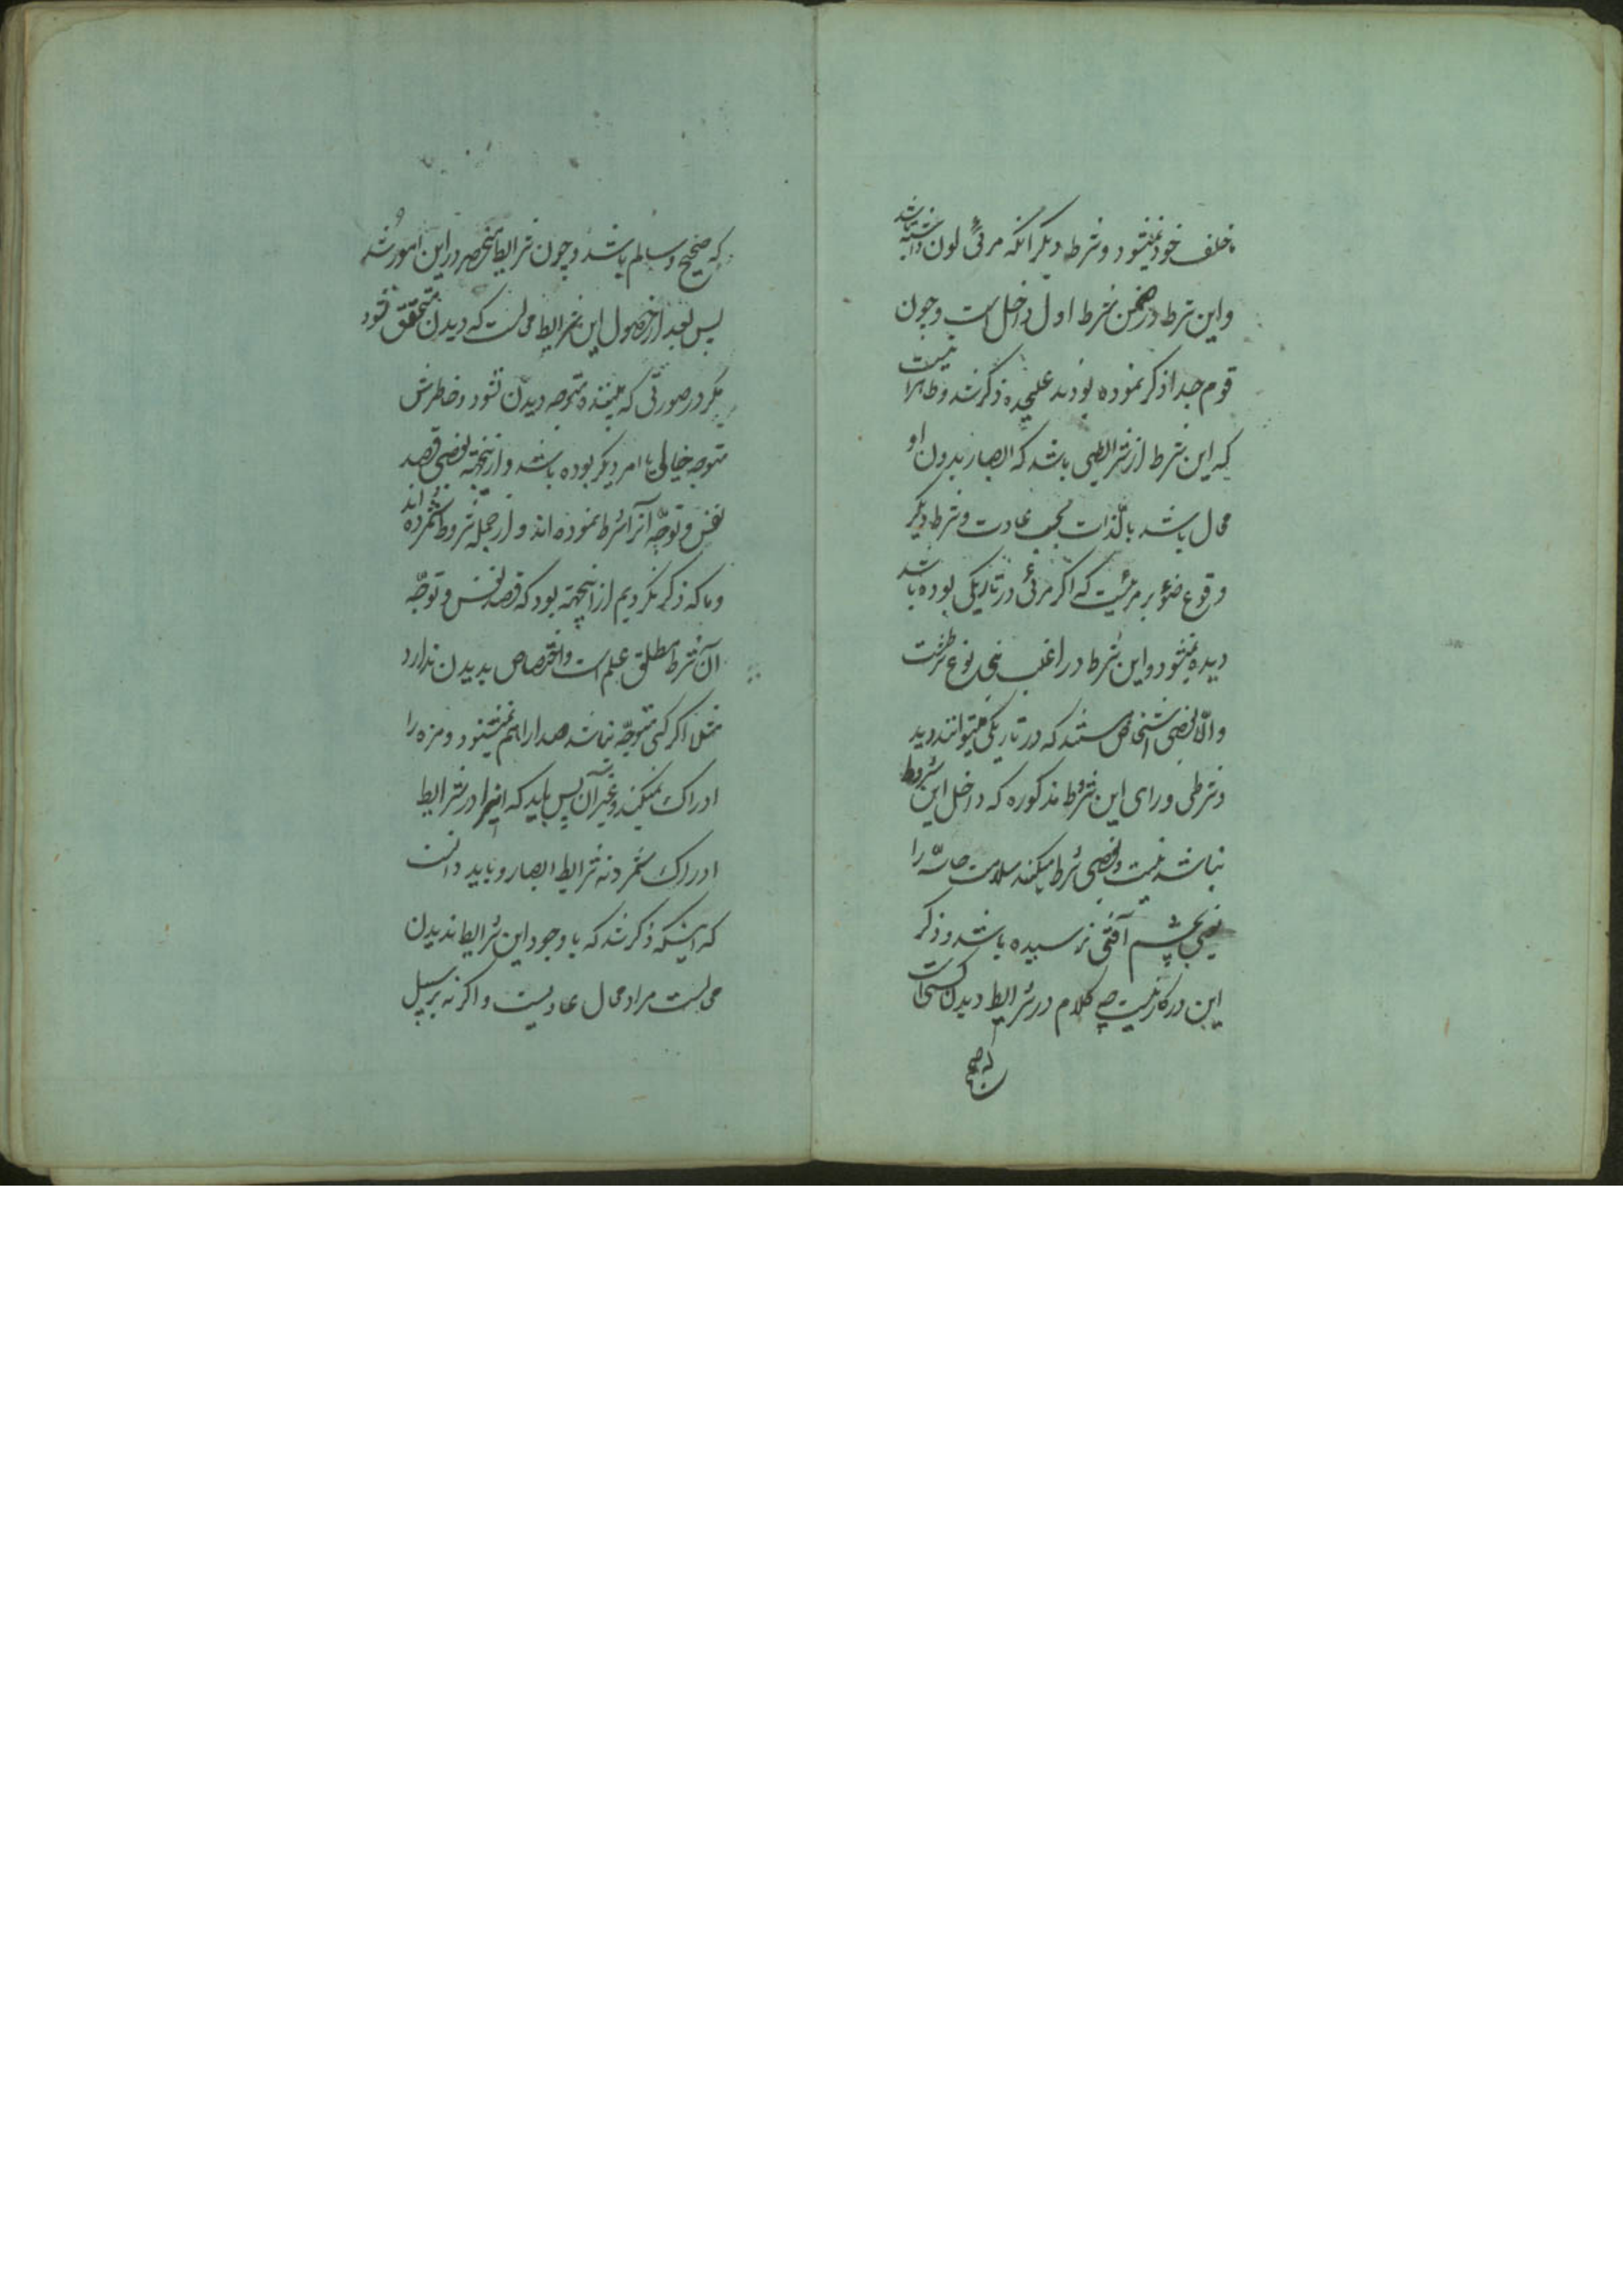 خلف خود نمیشود و شرط دیگر آنکه مرئی لون داشته باشد
و این شرط در ضمن شرط اول داخل است و چون
قوم جدا ذکر نموده بودند علیحده ذکر شد و ظاهرا نیست
که این شرط از شرایطی باشد که ابصار بدون او
محال باشد بالذات بحسب عادت و شرط دیگر
وقوع ضوء بر مرئیست که اگر مرئی در تاریکی بوده باشد
دیده نمیشود و این شرط در اغلب بنی نوع شرطست
و الّا بعضی اشخاص هستند که در تاریکی میتوانند دید
و شرطی ورای این شروط مذکوره که داخل این شروط
نباشد نیست و بعضی شرط میکنند سلامت حاسّه را
یعنی بچشم آفتی نرسیده باشد و ذکر
این در کار نیست چه کلام در شرایط دیدن کسی است
که صحیح
که صحیح و سالم باشد و چون شرایط منحصر در این امور شد
پس بعد از حصول این شرایط محالست که دیدن متحقق نشود
مگر در صورتی که بیننده متوجه دیدن نشود و خاطرش
متوجه خیالی یا امر دیگر بوده باشد و ازینجهة بعضی قصد
نفس و توجّه آنرا شرط نموده اند و از جمله شروط شمرده اند
و ما که ذکر نکردیم از اینجهة بود که قصد نفس و توجّه
آن شرط مطلق علم است و اختصاص بدیدن ندارد
مثلا اگر کسی متوجّه نباشد صدا را هم نمیشنود و مزه را
ادراک نمیکند و غیر آن پس باید که اینرا در شرایط
ادراک شمرد نه شرایط ابصار و باید دانست
که اینکه ذکر شد که با وجود این شرایط ندیدن
محالست مراد محال عادیست و اگر نه بر سبیل